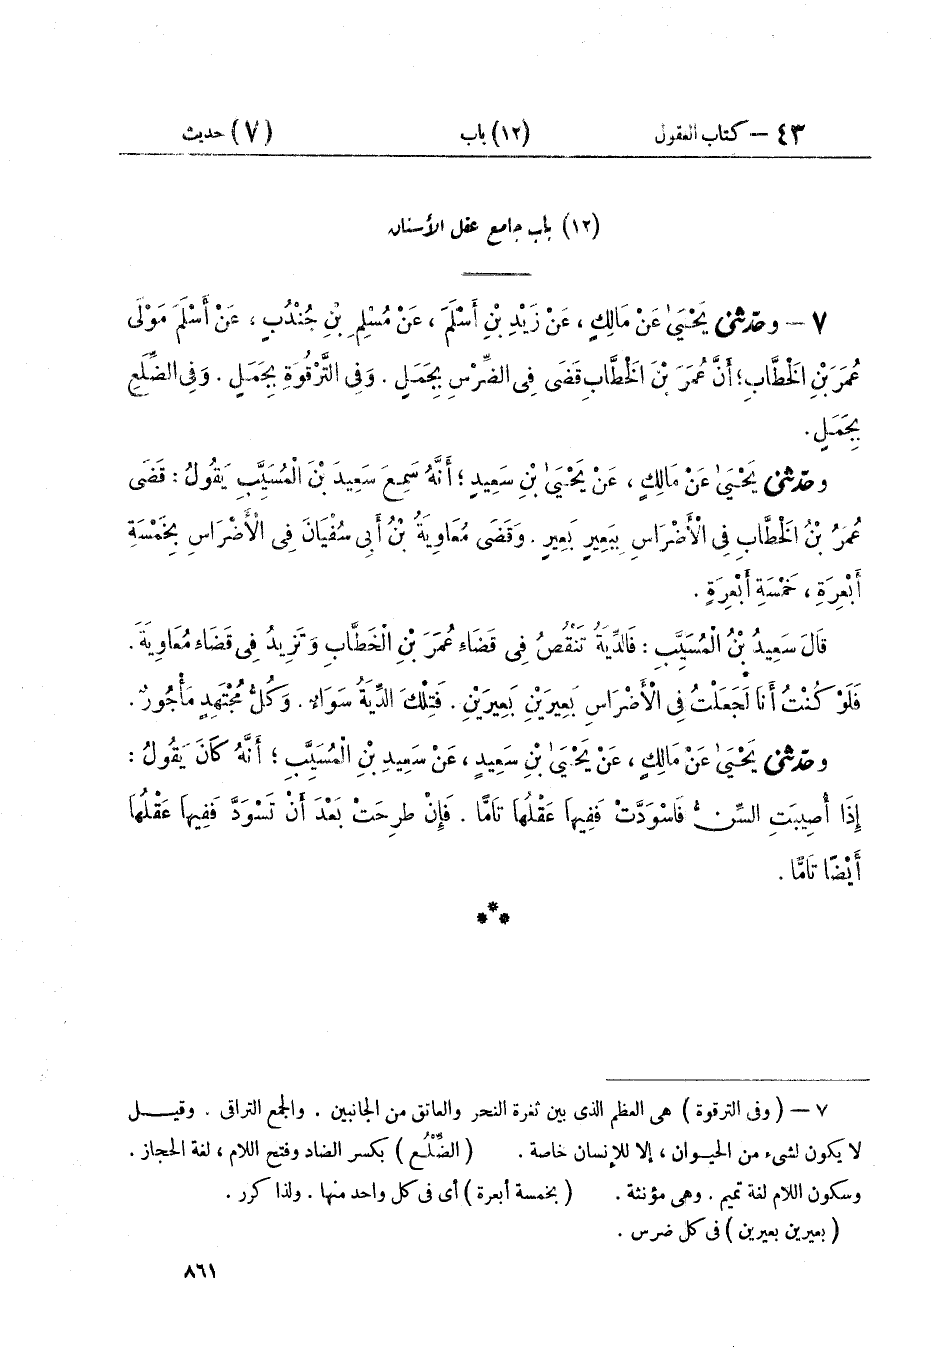 ٤٣ – كتاب العقول (١٢) باب (٧) حديث
(١٢) باب جامع عقل الأسنان
٧ – وحَدَّثَنِي يَحْيَىٰ عَنْ مَالِكٍ ، عَنْ زَيْدِ بْنِ أَسْلَمَ ، عَنْ مُسْلِمِ بْنِ جُنْدُبٍ ، عَنْ أَسْلَمَ مَوْلَى
عُمَرَ بْنِ الْخَطَّابِ ؛ أَنَّ عُمَرَ بْنَ الْخَطَّابِ قَضَى فِي الضِّرْسِ بِجَمَلٍ . وَفِي التَّرْقُوَةِ بِجَمَلٍ . وَفِي الضِّلَعِ
بِجَمَلٍ .
وحَدَّثَنِي يَحْيَىٰ عَنْ مَالِكٍ ، عَنْ يَحْيَىٰ بْنِ سَعِيدٍ ؛ أَنَّهُ سَمِعَ سَعِيدَ بْنَ الْمُسَيَّبِ يَقُولُ : قَضَى
عُمَرُ بْنُ الْخَطَّابِ فِي الْأَضْرَاسِ بِبَعِيرٍ بَعِيرٍ . وَقَضَى مُعَاوِيَةُ بْنُ أَبِي سُفْيَانَ فِي الْأَضْرَاسِ بِخَمْسَةِ
أَبْعِرَةٍ ، خَمْسَةِ أَبْعِرَةٍ .
قَالَ سَعِيدُ بْنُ الْمُسَيَّبِ : فَالدِّيَةُ تَنْقُصُ فِي قَضَاءِ عُمَرَ بْنِ الْخَطَّابِ وَتَزِيدُ فِي قَضَاءِ مُعَاوِيَةَ .
فَلَوْ كُنْتُ أَنَا لَجَعَلْتُ فِي الْأَضْرَاسِ بَعِيرَيْنِ بَعِيرَيْنِ . فَتِلْكَ الدِّيَةُ سَوَاءٌ . وَكُلُّ مُجْتَهِدٍ مَأْجُورٌ .
وحَدَّثَنِي يَحْيَىٰ عَنْ مَالِكٍ ، عَنْ يَحْيَىٰ بْنِ سَعِيدٍ ، عَنْ سَعِيدِ بْنِ الْمُسَيَّبِ ؛ أَنَّهُ كَانَ يَقُولُ :
إِذَا أُصِيبَتِ السِّنُّ فَاسْوَدَّتْ فَفِيهَا عَقْلُهَا تَامًّا . فَإِنْ طُرِحَتْ بَعْدَ أَنْ تَسْوَدَّ فَفِيهَا عَقْلُهَا
أَيْضًا تَامًّا .
***
٧ – ( وفى الترقوة ) هى العظم الذى بين ثغرة النحر والعاتق من الجانبين . والجمع التراقى . وقيـــل
لا يكون لشىء من الحيـوان ، إلا للإنسان خاصة . ( الضِّلَع ) بكسر الضاد وفتح اللام ، لغة الحجاز .
وسكون اللام لغة تميم . وهى مؤنثة . ( بخمسة أبعرة ) أى فى كل واحد منها . ولذا كرر .
( بعيرين بعيرين ) فى كل ضرس .
٨٦١